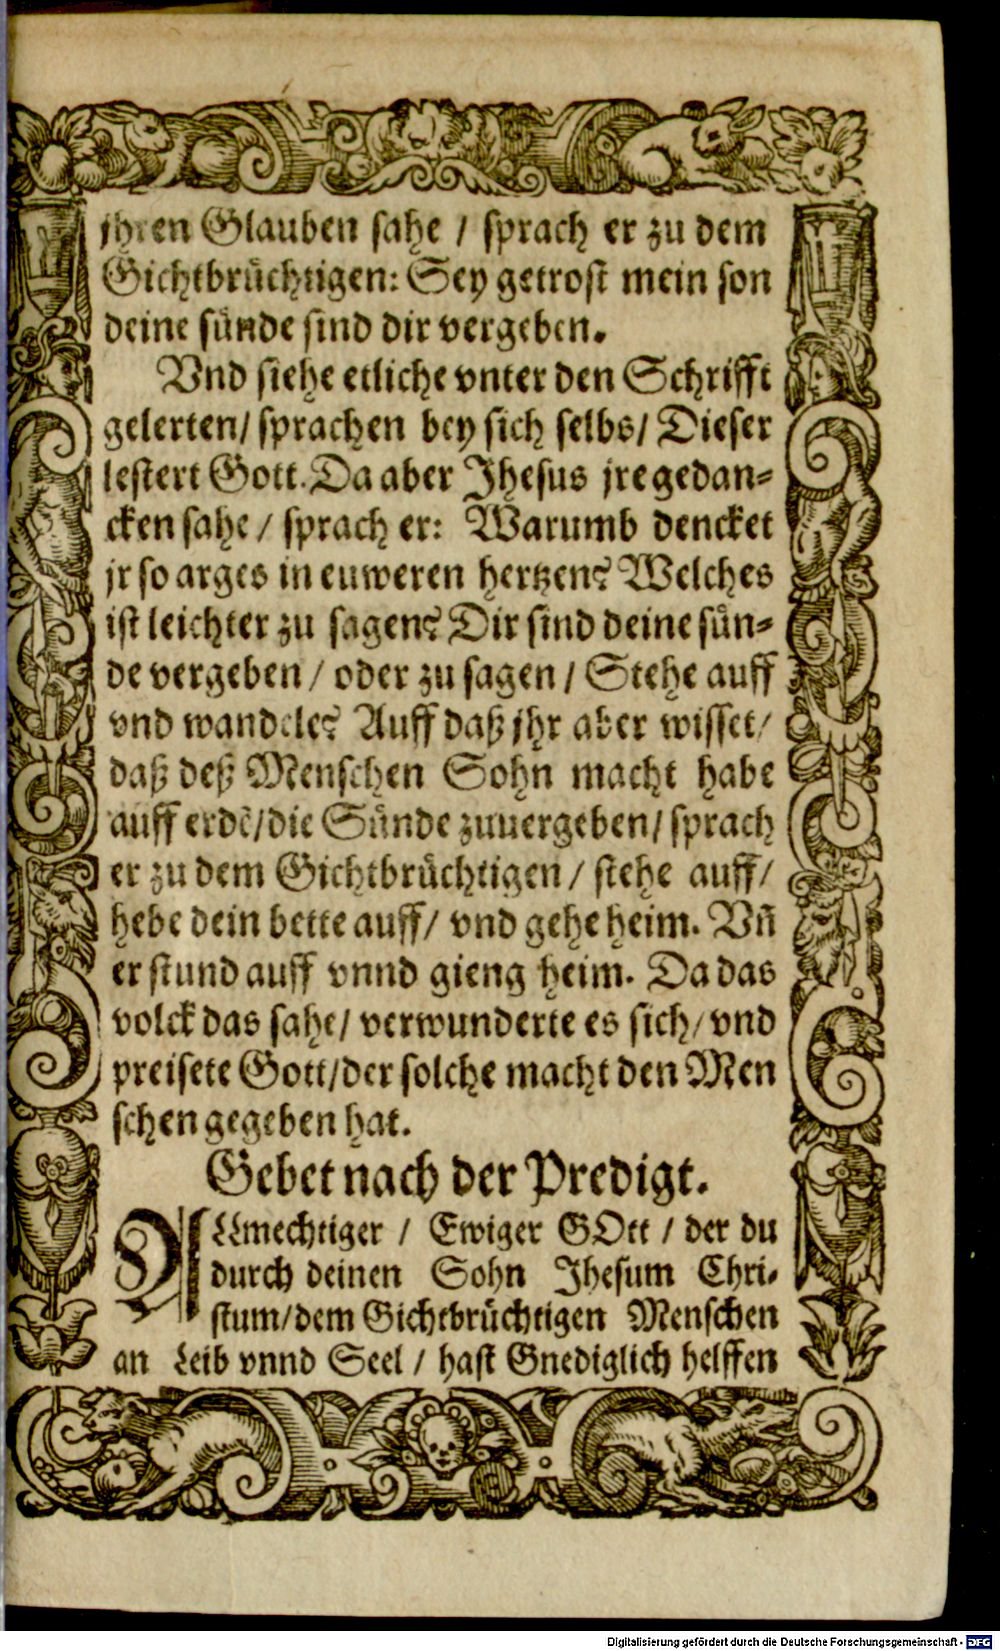 jhren Glauben sahe / sprach er zu dem
Gichtbrüchtigen: Sey getrost mein son
deine sünde sind dir vergeben.
Vnd siehe etliche vnter den Schrifft
gelerten/ sprachen bey sich selbs/ Dieser
lestert Gott. Da aber Jhesus jre gedan⸗
cken sahe / sprach er: Warumb dencket
jr so arges in euweren hertzen? Welches
ist leichter zu sagen? Dir sind deine sün⸗
de vergeben / oder zu sagen / Stehe auff
vnd wandele? Auff daß jhr aber wisset/
daß deß Menschen Sohn macht habe
auff erdẽ/die Sünde zuuergeben/ sprach
er zu dem Gichtbrüchtigen / stehe auff/
hebe dein bette auff/ vnd gehe heim. Vñ
er stund auff vnnd gieng heim. Da das
volck das sahe/ verwunderte es sich/ vnd
preisete Gott/der solche macht den Men
schen gegeben hat.
Gebet nach der Predigt.
ALLmechtiger / Ewiger GOtt / der du
durch deinen Sohn Jhesum Chri⸗
stum/dem Gichtbrüchtigen Menschen
an Leib vnnd Seel / hast Gnediglich helffen
Digitalisierung gefördert durch die Deutsche Forschungsgemeinschaft - DFG